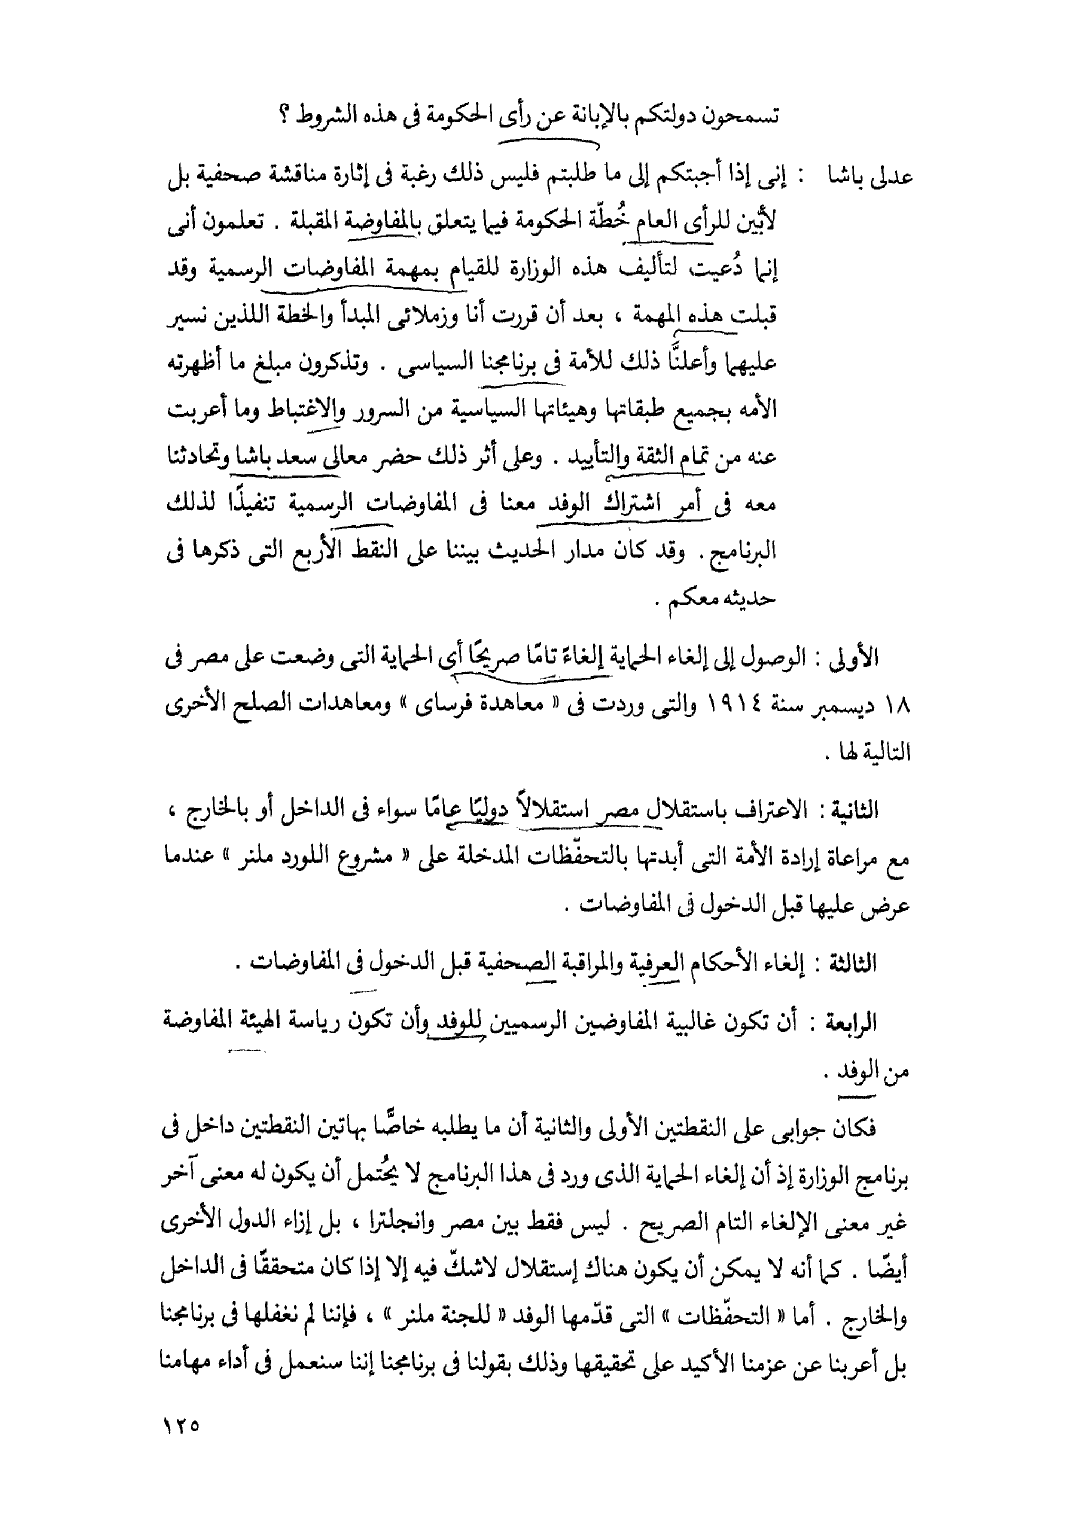 تسمحون دولتكم بالإبانة عن رأى الحكومة فى هذه الشروط ؟
عدلى باشا : إنى إذا أجبتكم إلى ما طلبتم فليس ذلك رغبة فى إثارة مناقشة صحفية بل
لأبين للرأى العام خُطّة الحكومة فيما يتعلق بالمفاوضة المقبلة . تعلمون أنى
إنما دُعيت لتأليف هذه الوزارة للقيام بمهمة المفاوضات الرسمية وقد
قبلت هذه المهمة ، بعد أن قررت أنا وزملائى المبدأ والخطة اللذين نسير
عليهما وأعلنَّا ذلك للأمة فى برنامجنا السياسى . وتذكرون مبلغ ما أظهرته
الأمه بجميع طبقاتها وهيئاتها السياسية من السرور والاغتباط وما أعربت
عنه من تمام الثقة والتأييد . وعلى أثر ذلك حضر معالى سعد باشا وتحادثنا
معه فى أمر اشتراك الوفد معنا فى المفاوضات الرسمية تنفيذًا لذلك
البرنامج . وقد كان مدار الحديث بيننا على النقط الأربع التى ذكرها فى
حديثه معكم .
الأولى : الوصول إلى إلغاء الحماية إلغاءً تامًا صريحًا أى الحماية التى وضعت على مصر فى
١٨ ديسمبر سنة ١٩١٤ والتى وردت فى « معاهدة فرساى » ومعاهدات الصلح الأخرى
التالية لها .
الثانية : الاعتراف باستقلال مصر استقلالاً دوليًا عامًا سواء فى الداخل أو بالخارج ،
مع مراعاة إرادة الأمة التى أبدتها بالتحفّظات المدخلة على « مشروع اللورد ملنر » عندما
عرض عليها قبل الدخول فى المفاوضات .
الثالثة : إلغاء الأحكام العرفية والمراقبة الصحفية قبل الدخول فى المفاوضات .
الرابعة : أن تكون غالبية المفاوضين الرسميين للوفد وأن تكون رياسة الهيئة المفاوضة
من الوفد .
فكان جوابى على النقطتين الأولى والثانية أن ما يطلبه خاصًّا بهاتين النقطتين داخل فى
برنامج الوزارة إذ أن إلغاء الحماية الذى ورد فى هذا البرنامج لا يحُتمل أن يكون له معنى آخر
غير معنى الإلغاء التام الصريح . ليس فقط بين مصر وانجلترا ، بل إزاء الدول الأخرى
أيضًا . كما أنه لا يمكن أن يكون هناك إستقلال لاشكّ فيه إلا إذا كان متحققًا فى الداخل
والخارج . أما « التحفّظات » التى قدّمها الوفد « للجنة ملنر » ، فإننا لم نغفلها فى برنامجنا
بل أعربنا عن عزمنا الأكيد على تحقيقها وذلك بقولنا فى برنامجنا إننا سنعمل فى أداء مهامنا
١٢٥